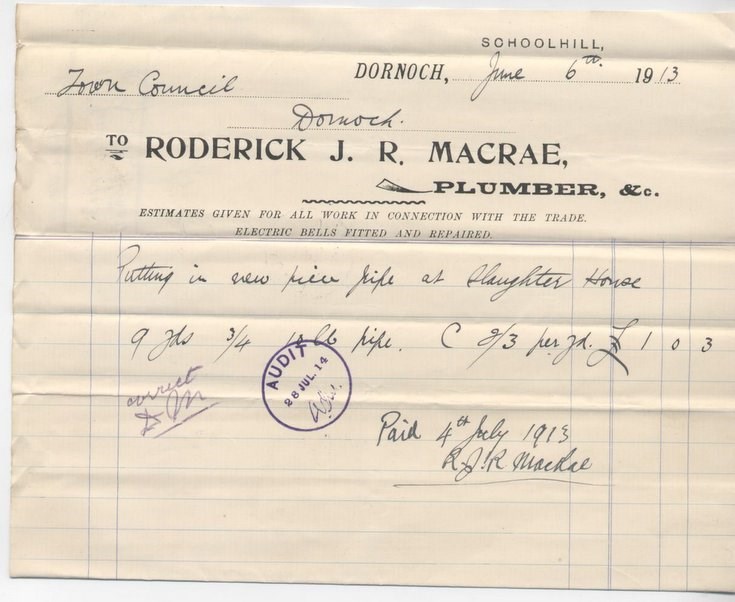 SCHOOLHILL,
DORNOCH, June 6th 1913
Town Council
Dornoch.
TO RODERICK J. R. MACRAE,
PLUMBER, &c.
ESTIMATES GIVEN FOR ALL WORK IN CONNECTION WITH THE TRADE.
ELECTRIC BELLS FITTED AND REPAIRED.
Putting in new piece pipe at Slaughter House
9 yds 3/4 lb pipe. 2/3 per yd. £ 1 0 3
correct
AUDIT
28 JUL. 14
Paid 4th July 1913
R. J. R MacRae